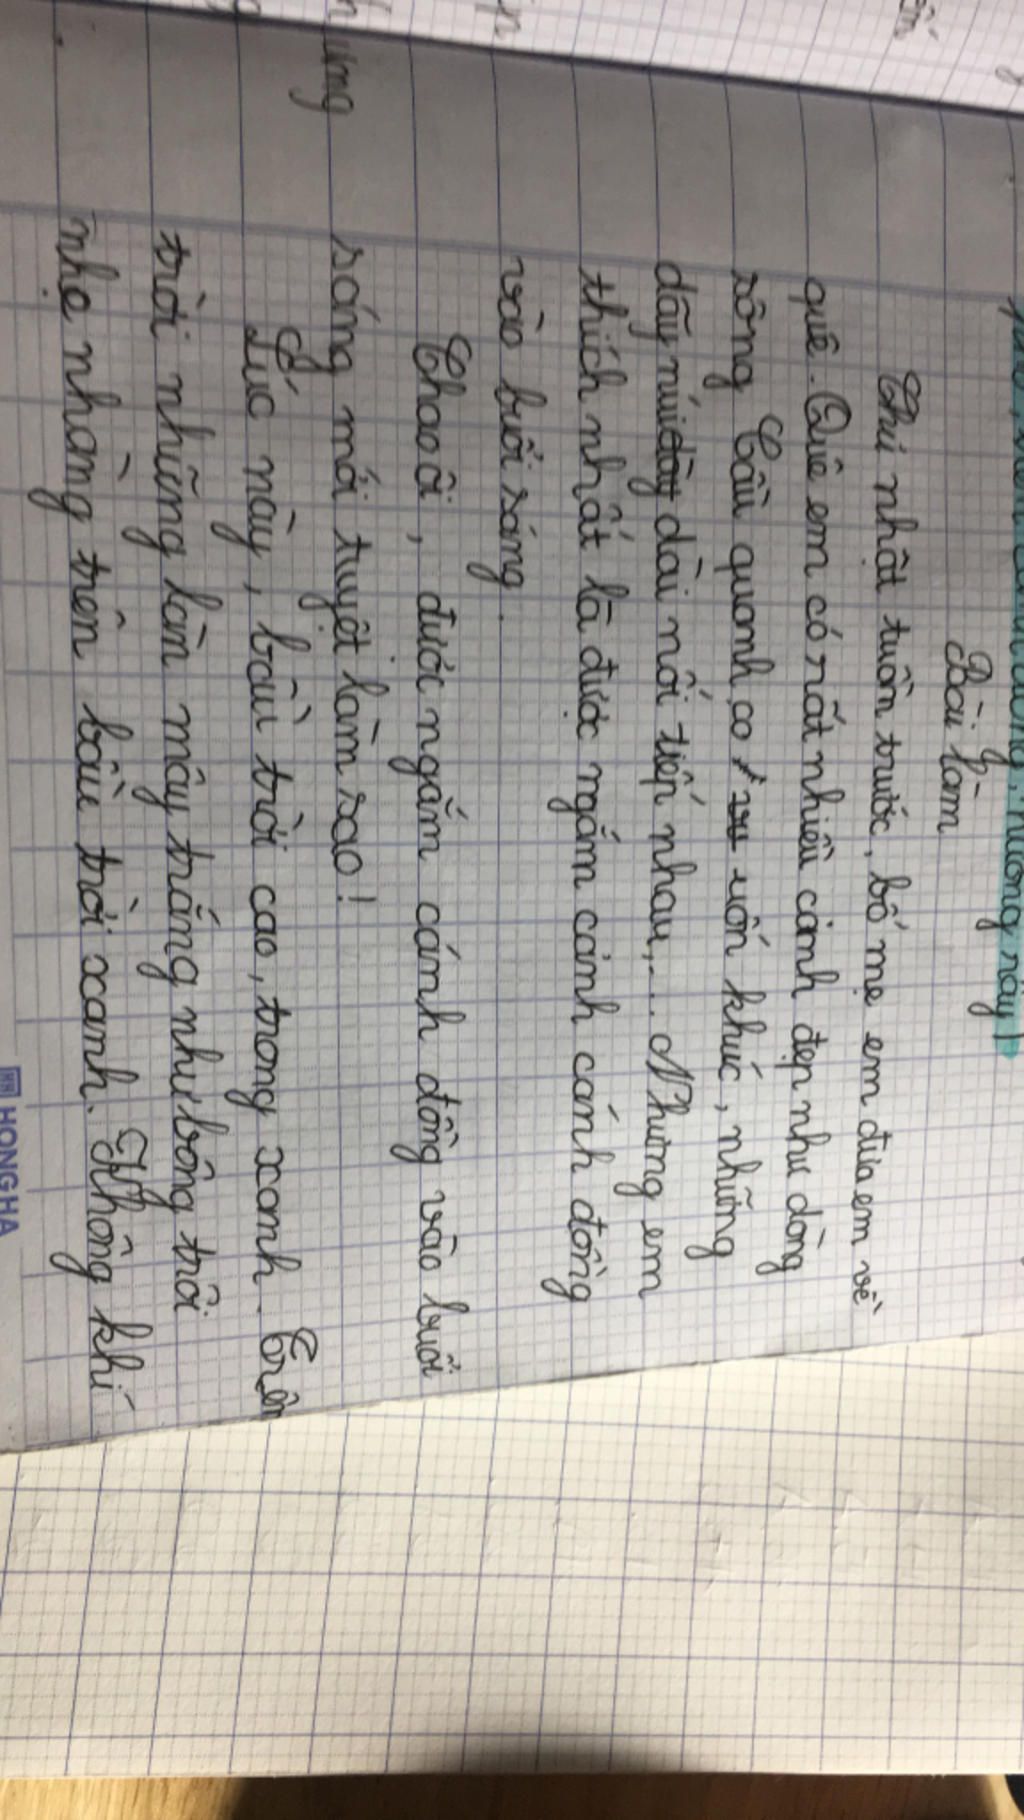 hương này!
Bài làm
Chủ nhật tuần trước, bố mẹ em đưa em về
quê. Quê em có rất nhiều cảnh đẹp như dòng
sông Cầu quanh co uốn khúc, những
dãy núi dài nối tiếp nhau,... Nhưng em
thích nhất là được ngắm cảnh cánh đồng
vào buổi sáng.
Chao ôi, đước ngắm cánh đồng vào buổi
sáng mới tuyệt làm sao!
Lúc này, bầu trời cao, trong xanh. Trên
trời những làn mây trắng như bông trôi
nhẹ nhàng trên bầu trời xanh. Không khí
HONG HA